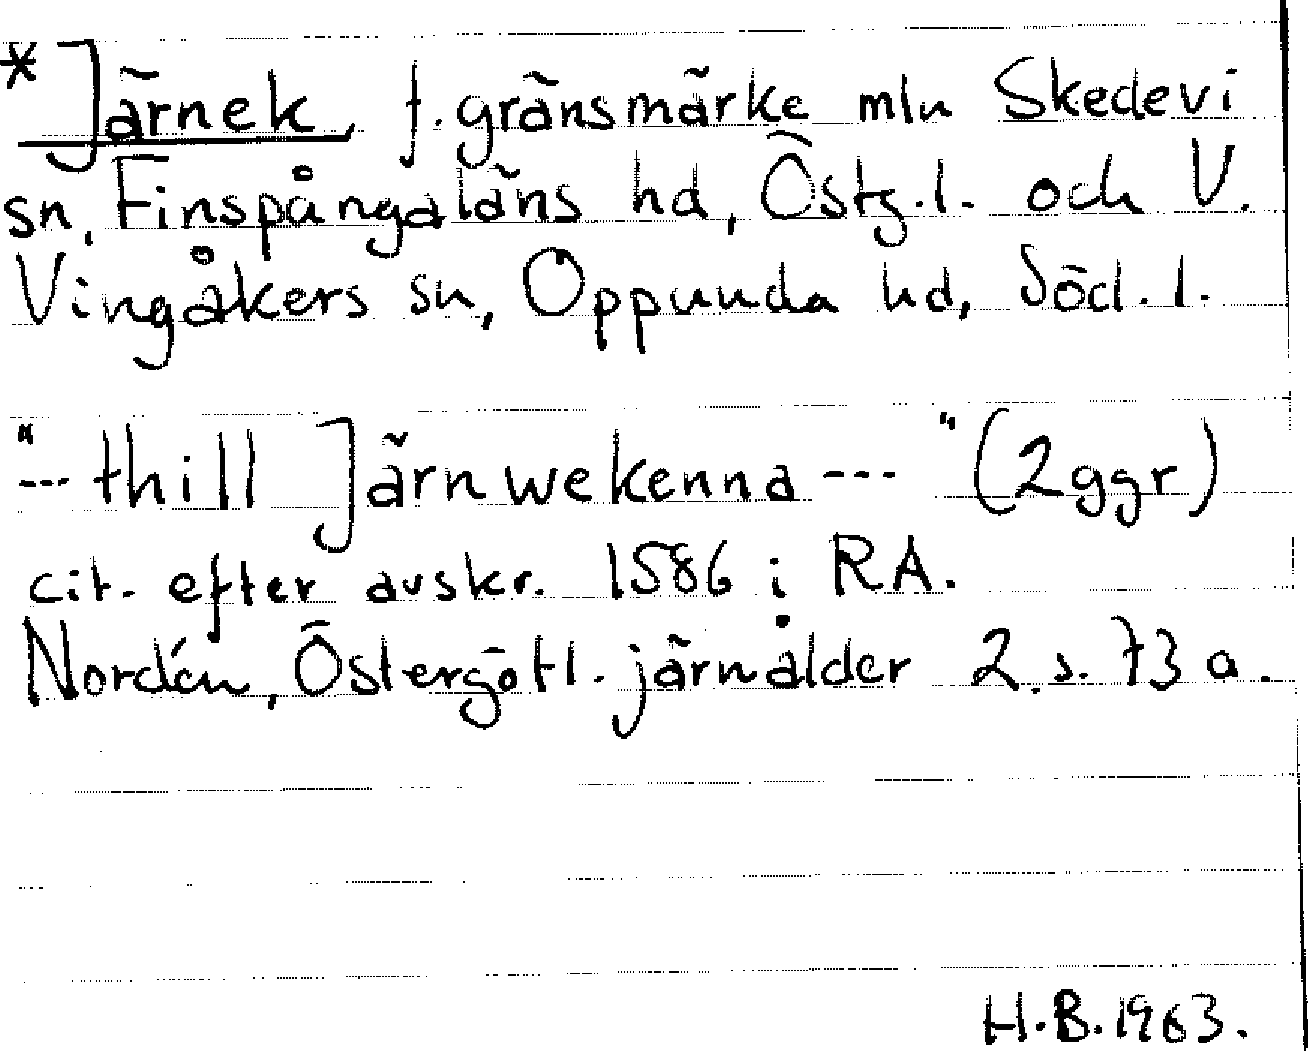 * Järnek, f. gränsmärke mln Skedevi
sn, Finspångaläns hd, Östg.l. och V.
Vingåkers sn, Oppunda hd, Söd.l.
"--- thill Järnwekenna --- " (2ggr)
cit. efter avskr. 1586 i RA.
Nordén, Östergötl. järnålder 2. s. 73 a.
H.B. 1963.